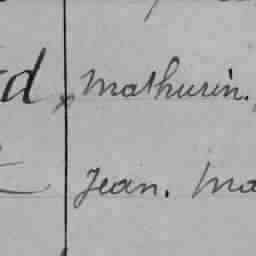 d Mathurin.
Jean. Ma